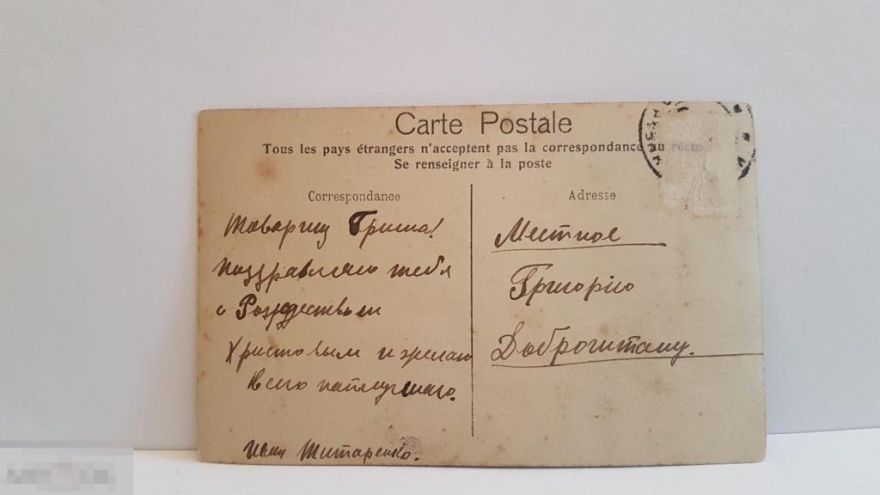 Carte Postale
Tous les pays étrangers n'acceptent pas la correspondance au recto
Se renseigner à la poste
Correspondance
Товарищ Гриша!
Поздравляю тебя
с Рождеством
Христовым и желаю
всего наилучшаго.
Иван Титаренко.
Adresse
Местное
Григорію